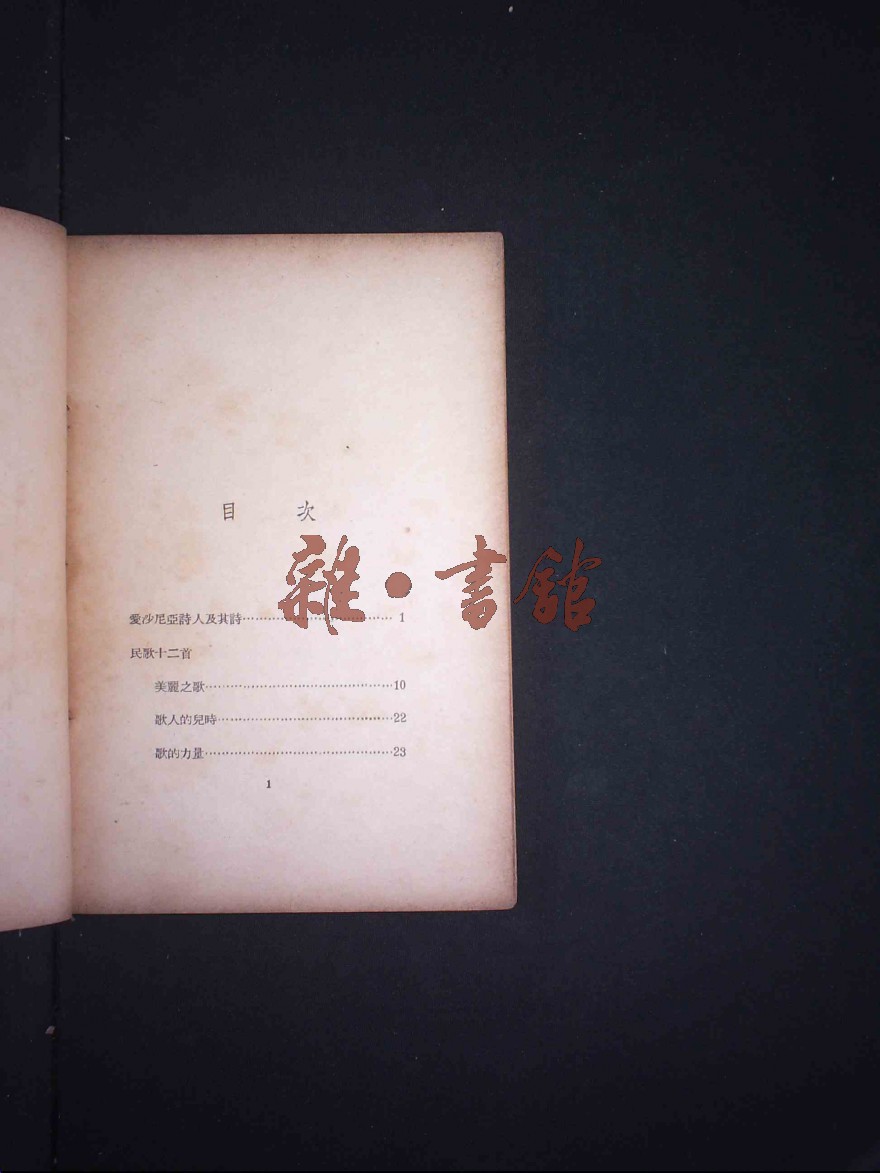 目 次
雜·書館
愛沙尼亞詩人及其詩…………………………… 1
民歌十二首
美麗之歌……………………………………10
歌人的兒時…………………………………22
歌的力量……………………………………23
1